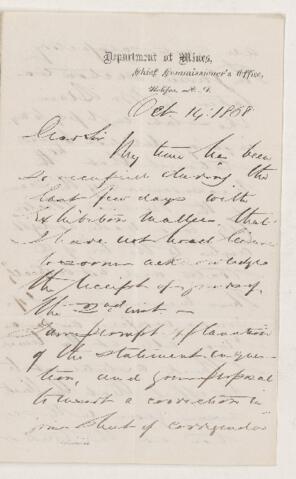 Department of Mines,
Chief Commissioner's Office,
Halifax, N. S.
Oct 14: 1868
Dear Sir
My time has been
so occupied during the
last few days with
Exhibition matters that
I have not had leisure
to sooner acknowledge
the receipt of yours of
the inst -
Your prompt explanation
of the statement in ques
tion, and your proposal
to insert a correction in
your sheet of corrigenda